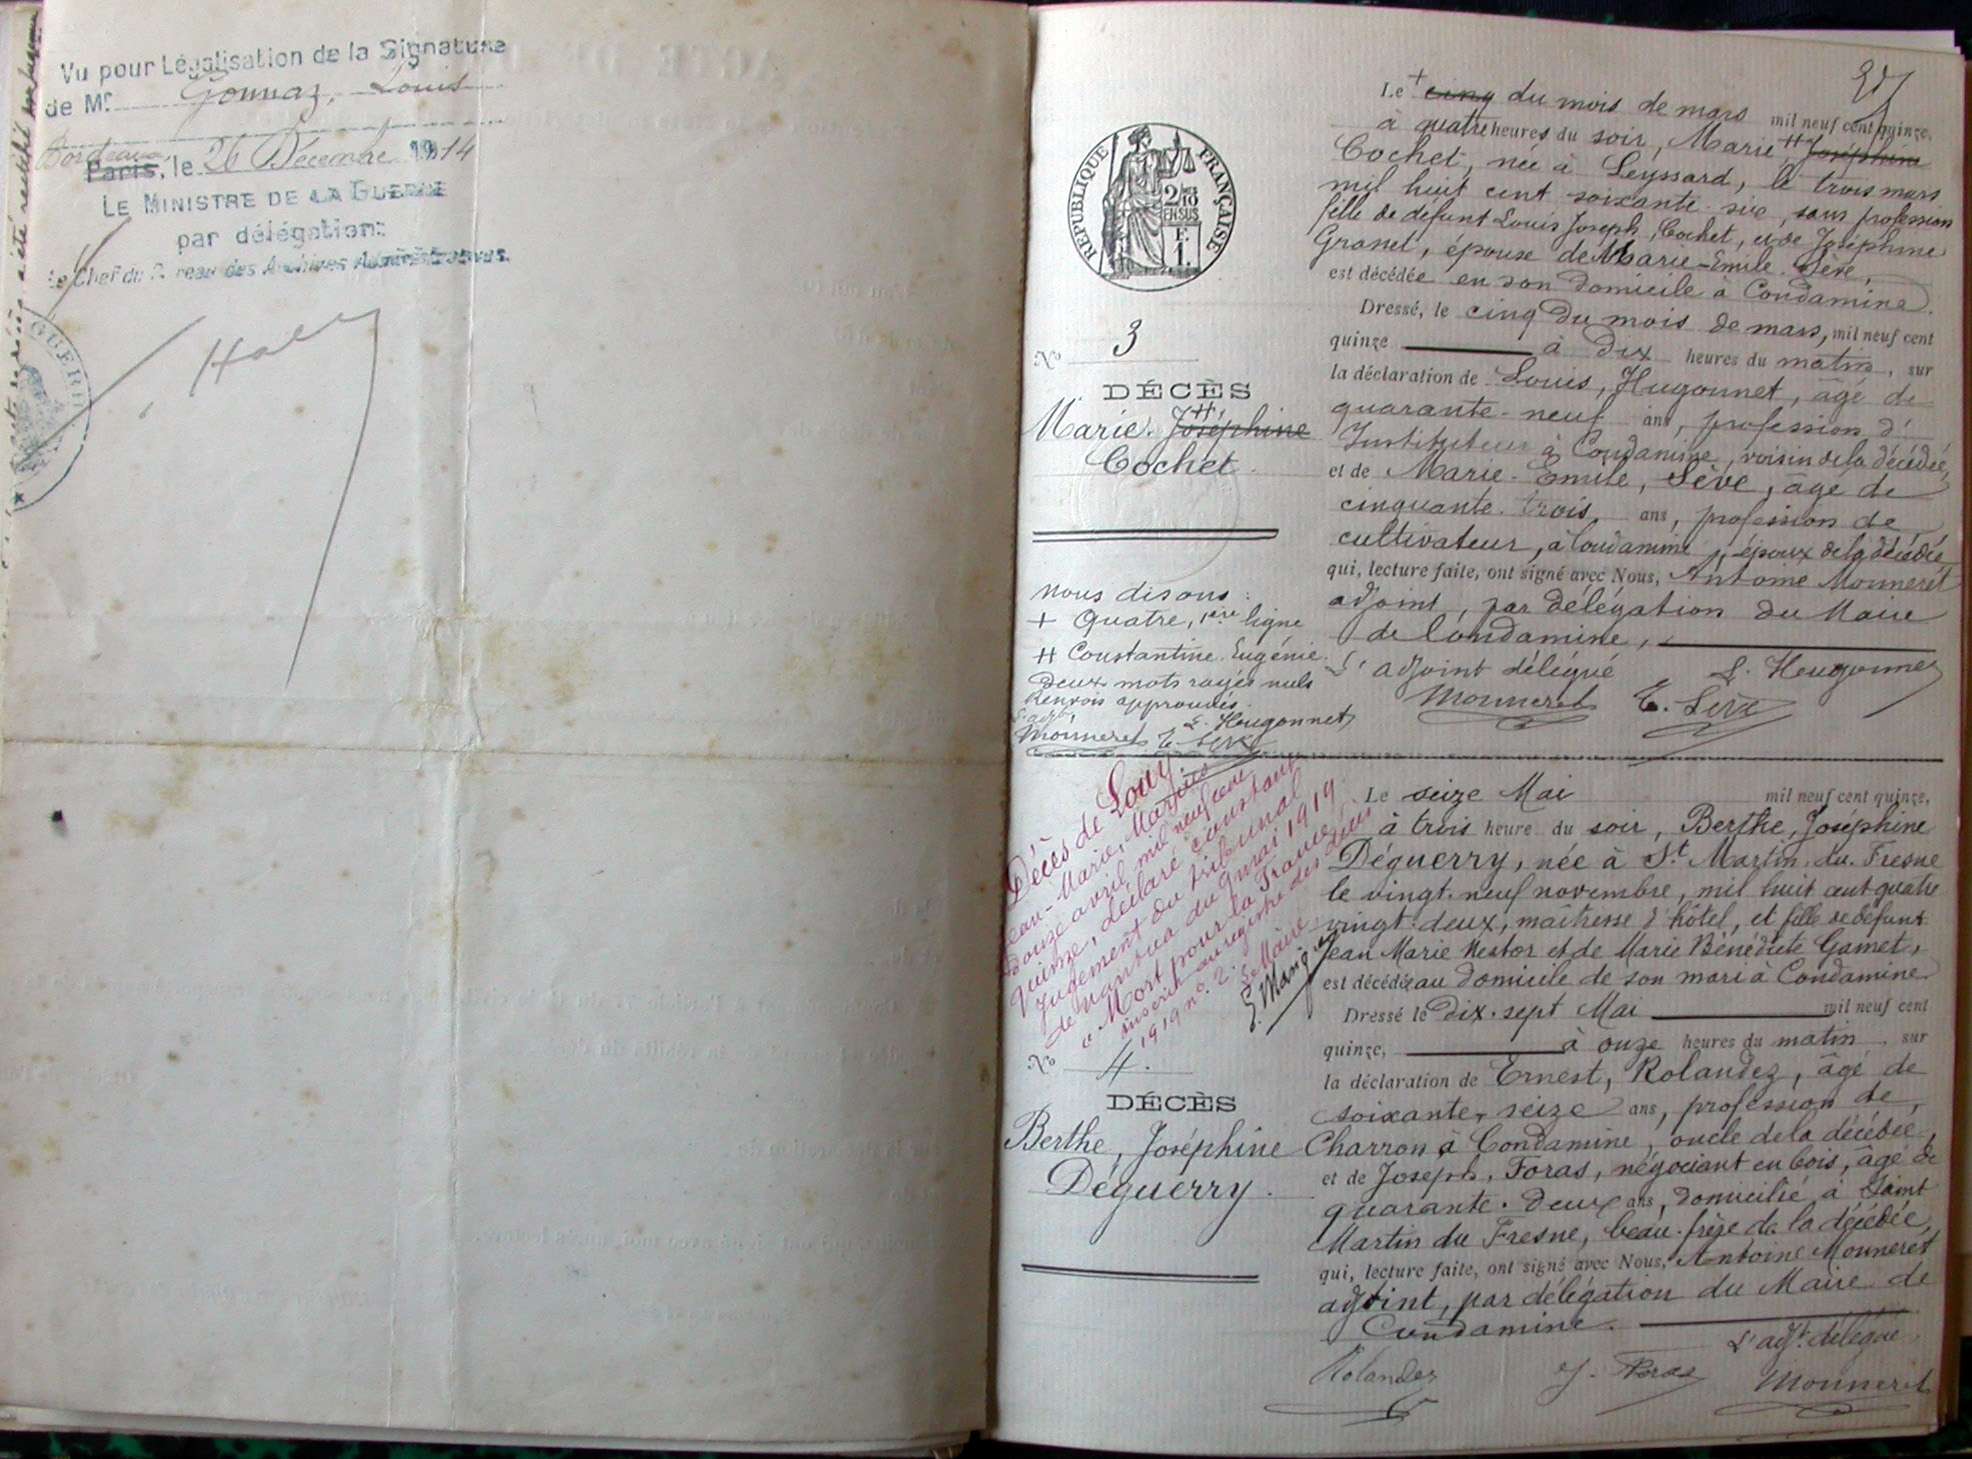 Vu pour Légalisation de la Signature
de Mr. Gonnaz, Louis
Bordeaux
Paris, le 26 Décembre 1914
LE MINISTRE DE LA GUERRE
par délégation:
Le Chef du Bureau des Archives Administratives.
GUERRE
Le + cinq du mois de mars mil neuf cent quinze,
à quatre heures du soir, Marie, H Joséphine
Cochet, née à Leyssard, le trois mars
mil huit cent soixante-six, sans profession
fille de défunt Louis Joseph, Cochet, et de Joséphine
Granet, épouse de Marie-Emile Sève,
est décédée en son domicile à Condamine.
Dressé, le cinq du mois de mars, mil neuf cent
quinze à dix heures du matin, sur
la déclaration de Louis, Hugonnet, âgé de
quarante-neuf ans, profession d'
Instituteur à Condamine, voisin de la décédée,
et de Marie-Emile, Sève, âgé de
cinquante-trois ans, profession de
cultivateur, à Condamine, époux de la décédée
qui, lecture faite, ont signé avec Nous, Antoine Monneret
adjoint, par délégation du Maire
de Condamine,
L'adjoint délégué L. Heugonnet
Monneret E. Sève
RÉPUBLIQUE FRANÇAISE
2/10 EN SUS
E.
1.
No 3
DÉCÈS
Marie, H Joséphine
Cochet
nous disons:
+ Quatre, 1ère ligne
H Constantine Eugénie.
deux mots rayés nuls
Renvois approuvés.
L'adjt, L. Heugonnet
Monneret E. Sève
Décès de Louy
Jean-Marie, Marius
douze avril mil neuf cent
quinze, déclaré constant
Jugement du tribunal
de Nantua du 9 mai 1919
"Mort pour la France"
inscrit au registre des décès
1919 no. 2. Le Maire
Le seize Mai mil neuf cent quinze,
à trois heure du soir, Berthe, Joséphine
Déguerry, née à St Martin-du-Fresne
le vingt-neuf novembre, mil huit cent quatre
vingt-deux, maîtresse d'hôtel, et fille de défunt
Jean Marie Nestor et de Marie Bénédicte Gamet,
est décédée au domicile de son mari à Condamine
Dressé le dix-sept Mai mil neuf cent
quinze, à onze heures du matin, sur
la déclaration de Ernest, Rolandez, âgé de
soixante-seize ans, profession de,
Charron à Condamine, oncle de la décédée,
et de Joseph, Foras, négociant en bois, âgé de
quarante-deux ans, domicilié à Saint
Martin du Fresne, beau-frère de la décédée,
qui, lecture faite, ont signé avec Nous, Antoine Monneret
adjoint, par délégation du Maire de
Condamine.
L'adjt. délégué
Rolandez J. Foras Monneret
No 4.
DÉCÈS
Berthe, Joséphine
Déguerry.